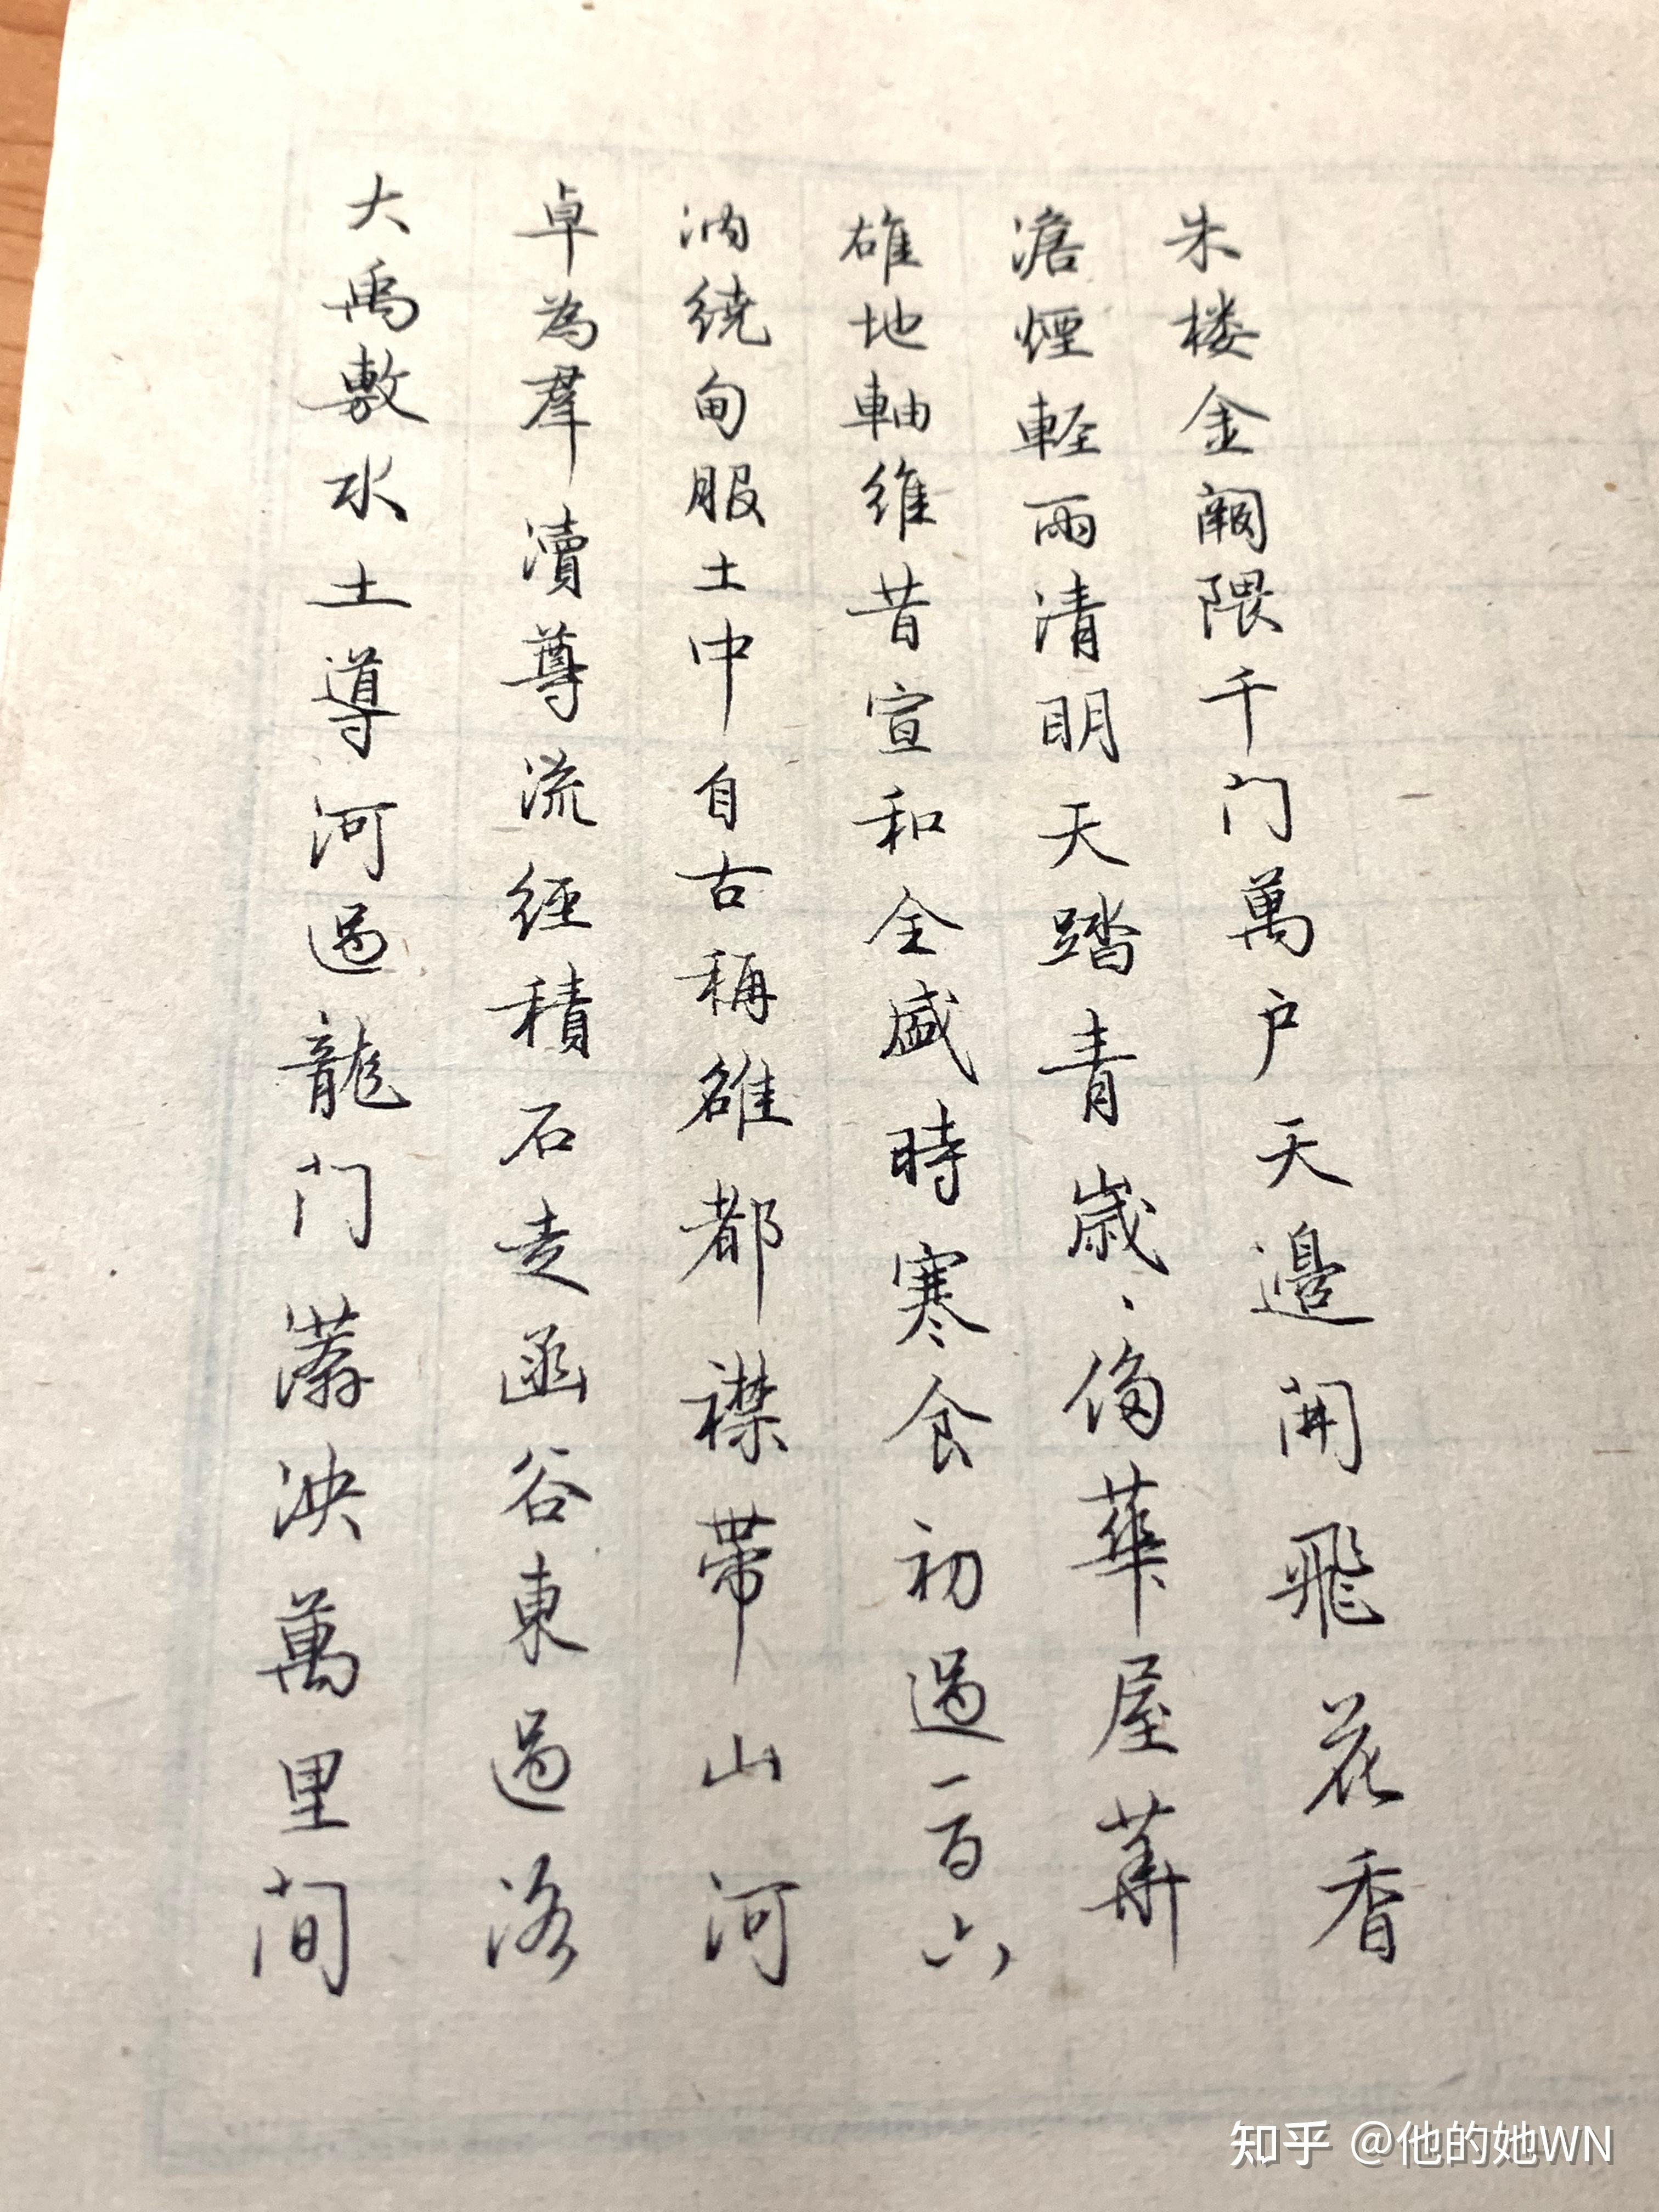 大禹敷水土導河過龍门漭泱萬里间
卓為羣瀆尊流經積石走函谷東過洛
汭繞甸服土中自古稱雄都襟帶山河
雄地軸維昔宣和全盛時寒食初過一百六
澹煙輕雨清明天踏青歲、侈華屋華
朱楼金闕隈千门萬户天邊開飛花香
知乎 @他的她WN